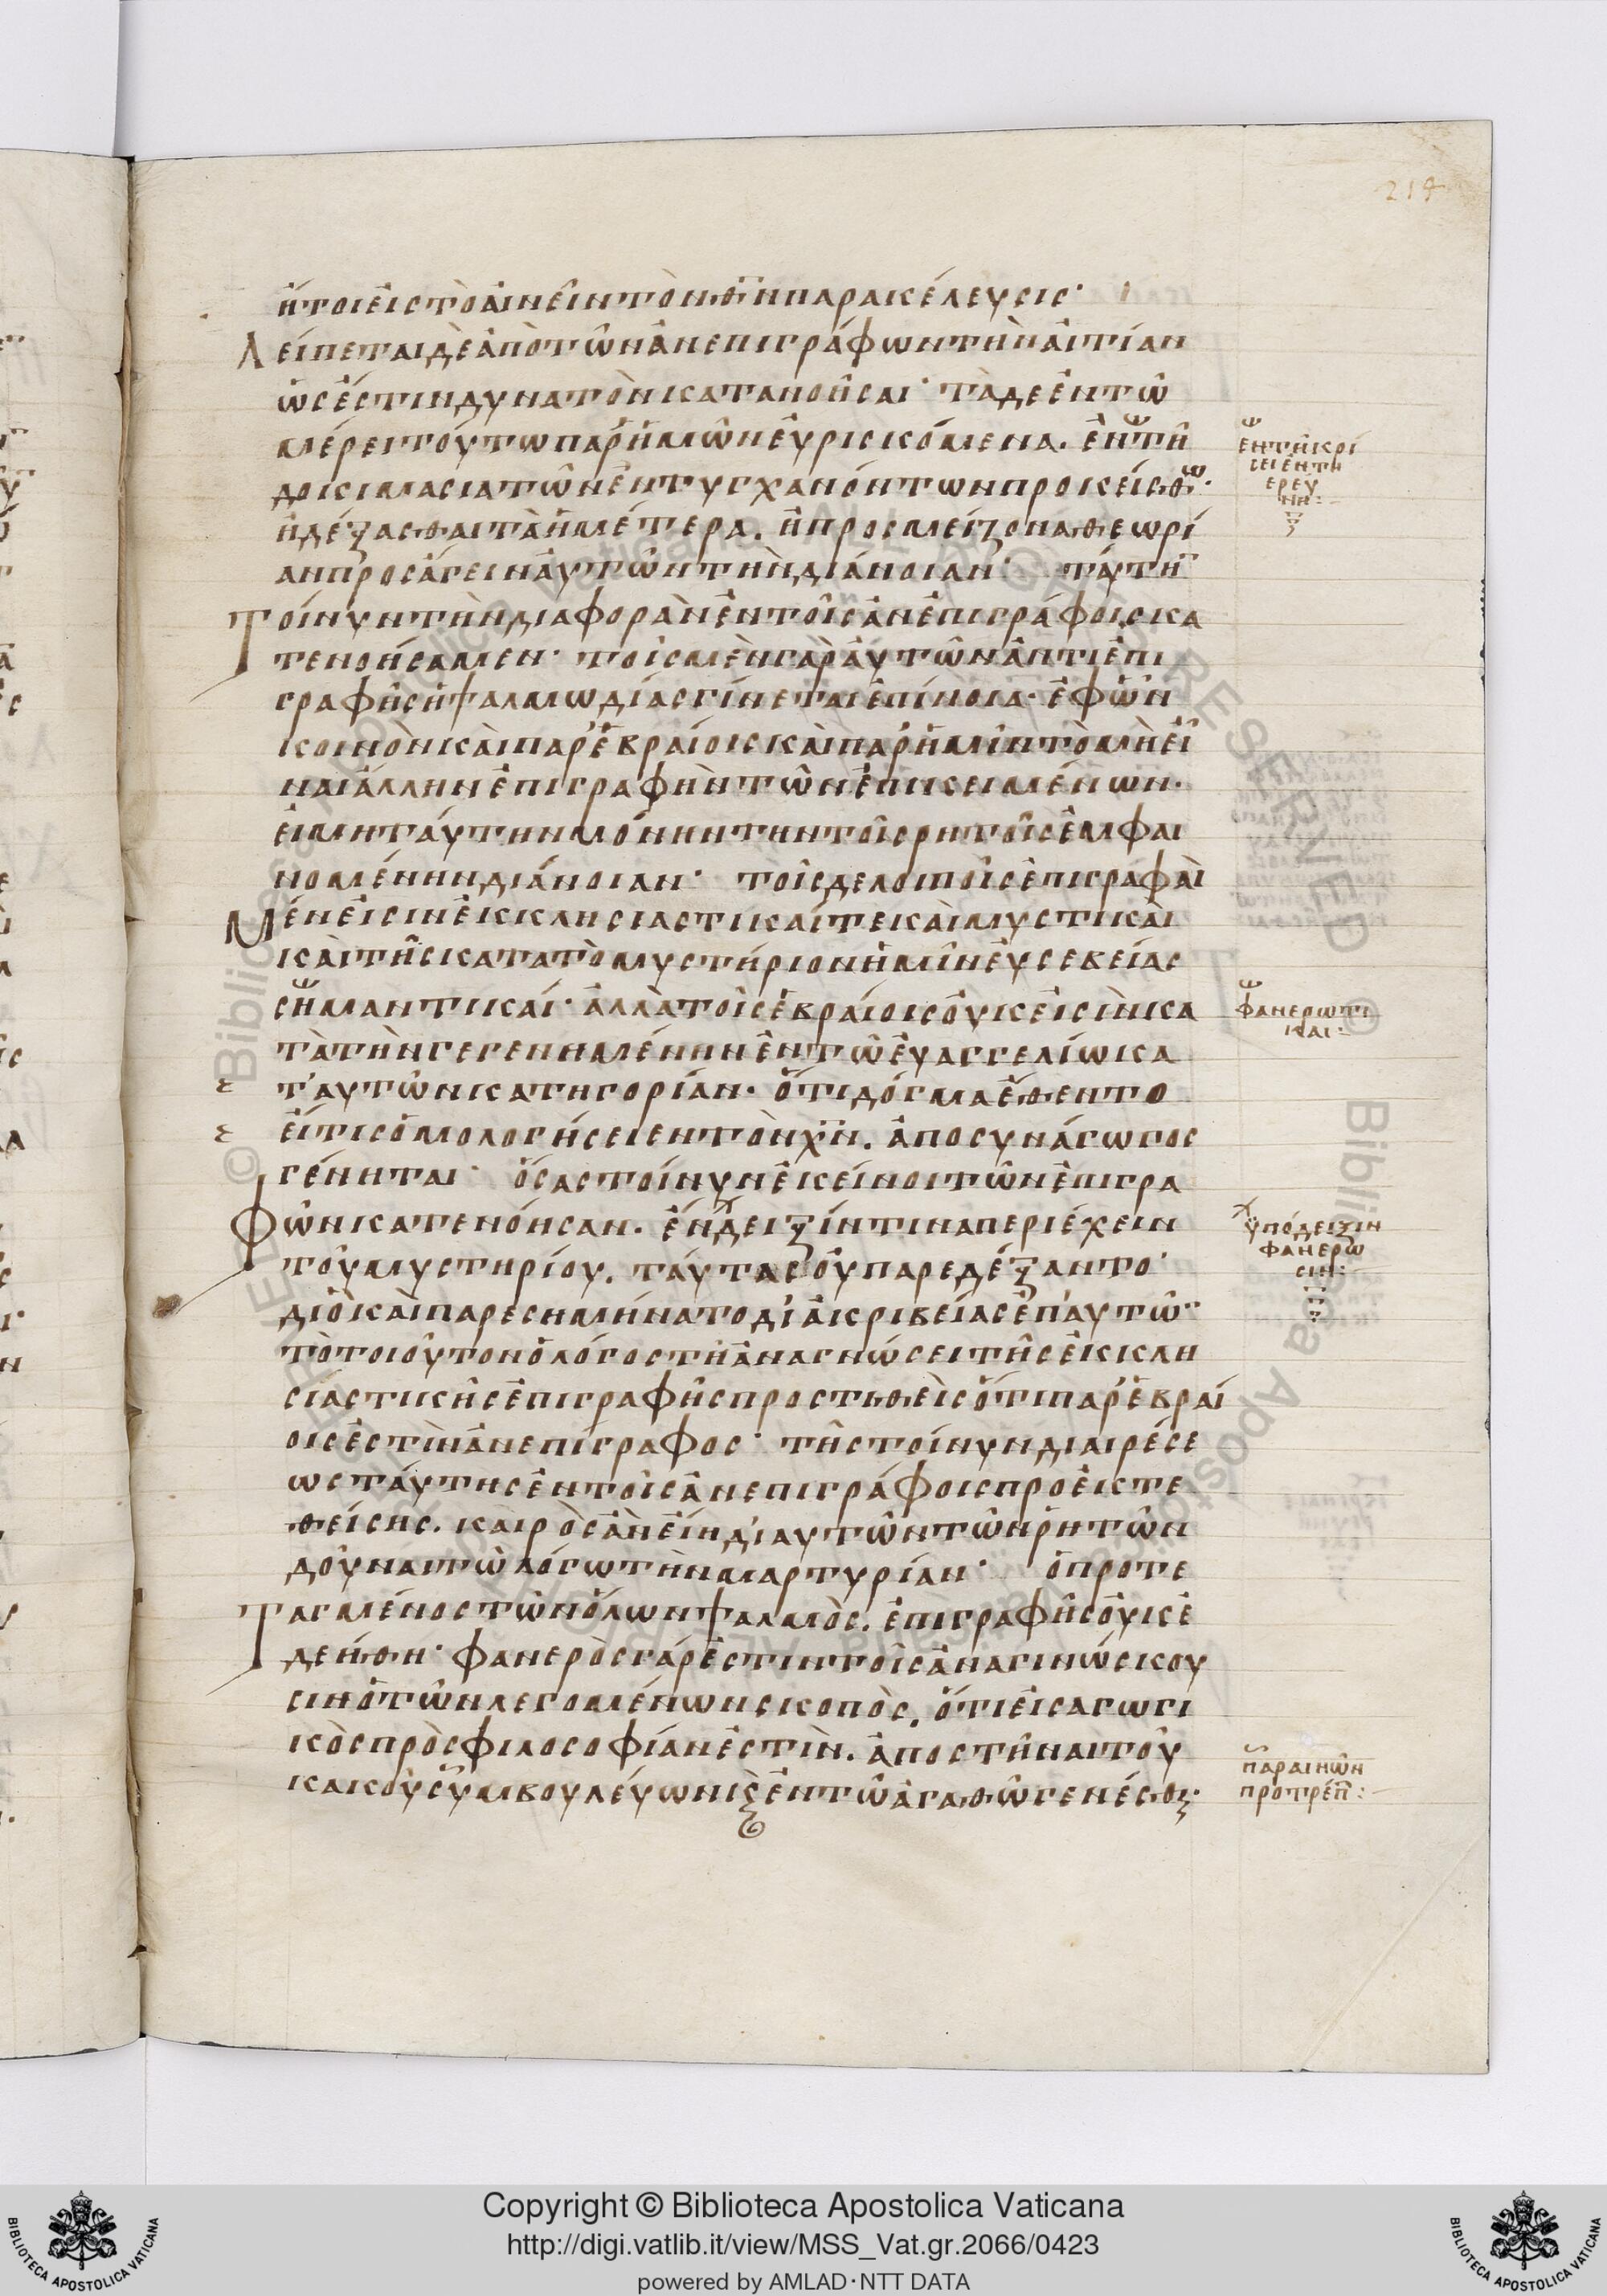 219
ἤτοι εἰς τὸ αἰνεῖν τὸν θν παρακέλευσις·
Λείπεται δὲ ἀπὸ τῶν ἀνεπιγράφων τὴν αἰτίαν
ὡς ἐστιν δυνατὸν κατανοῆσαι· τὰ δε ἐν τῶ
μέρει τούτω παρ' ἡμῶν ἑυρισκόμενα. ἐν τῆ
δοκιμασια τῶν ἐντυγχανόντων προκείσθω·
ἢ δέξασθαι τὰ ἡμέτερα. ἢ προς μείζονα θεωρί
αν προσάγειν ἀυτῶν τὴν διάνοιαν· τάυτη
Τοίνυν τὴν διαφορὰν ἐν τοῖς ἀνεπιγράφοις κα
τενοήσαμεν· τοῖς μὲν γὰρ ἀυτῶν ἀντι ἐπι
γραφῆς ἡ ψαλμωδίας γίνεται ἐπίνοια· ἐφ ὧν
κοινὸν καὶ παρ' ἑβραίοις καὶ παρ' ἡμῖν τὸ μὴ εἶ
ναι ἄλλην ἐπιγραφὴν τῶν ἐπικειμένων.
ἐι μη τάυτην μόνην την τοῖς ρητοῖς ἐμφαι
νομένην διάνοιαν· τοῖς δε λοιποῖς ἐπιγραφαὶ
Μέν ἐισιν ἐκκλησιαστικαί τε καὶ μυστικαὶ
καὶ τῆς κατα τὸ μυστήριον ἡμῖν ἐυσεβείας
σημαντικαί· ἀλλὰ τοῖς ἑβραίοις ὀυκ ἐισὶν κα
τὰ τὴν γεγενημένην ἐν τῶ ἐυαγγελίω κα
τ' αυτῶν κατηγορίαν· ὅτι δόγμα ἔθεντο
ἐίτις ὁμολογήσειεν τὸν χν. ἀποσυνάγωγος
γένηται· ὅσας τοίνυν ἐκεῖνοι τῶν ἐπιγρα
Φῶν κατενόησαν. ἔνδειξίν τινα περιέχειν
τοῦ μυστηρίου. τάυτας ὀυ παρεδέξαντο·
διὸ καὶ παρεσημήνατο δι' ἀκριβείας ἐπ' αυτῶ
τὸ τοιοῦτον ὁ λόγος τῆ ἀναγνώσει τῆς ἐκκλη
σιαστικῆς ἐπιγραφῆς προστιθεὶς ὅτι παρ' ἑβραί
οις ἐστὶν ἀνεπίγραφος· τῆς τοίνυν διαιρέσε
ως τάυτης ἐν τοῖς ἀνεπιγράφοις προεκτε
θείσης. καιρὸς ἂν ἐίη δι' αυτῶν τῶν ρητῶν
δοῦναι τῶ λόγω τὴν μαρτυρίαν· ὁ προτε
Ταγμένος τῶν ὅλων ψαλμὸς. ἐπιγραφῆς ὀυκ ἐ
δεήθη· φανερὸς γάρ ἐστιν τοῖς ἀναγινώσκου
σιν ὁ τῶν λεγομένων σκοπὸς. ὅτι ἐισαγωγι
κὸς πρὸς φιλοσοφίαν ἐστὶν. ἀποστῆναι τοῦ
κακοῦ συμβουλέυων κ ἐν τῶ ἀγαθῶ γενέσθαι·
ἐν τῆ κρί
σει ἐν τη
ερεύ
νη:
φανερωτι
και:
ὑπόδειξιν
φανερω
σιν:
παραινῶν
προτρέπ:
© Biblioteca Apostolica Vaticana ALL RIGHTS RESERVED
Copyright © Biblioteca Apostolica Vaticana
http://digi.vatlib.it/view/MSS_Vat.gr.2066/0423
powered by AMLAD·NTT DATA
BIBLIOTECA APOSTOLICA VATICANA
BIBLIOTECA APOSTOLICA VATICANA